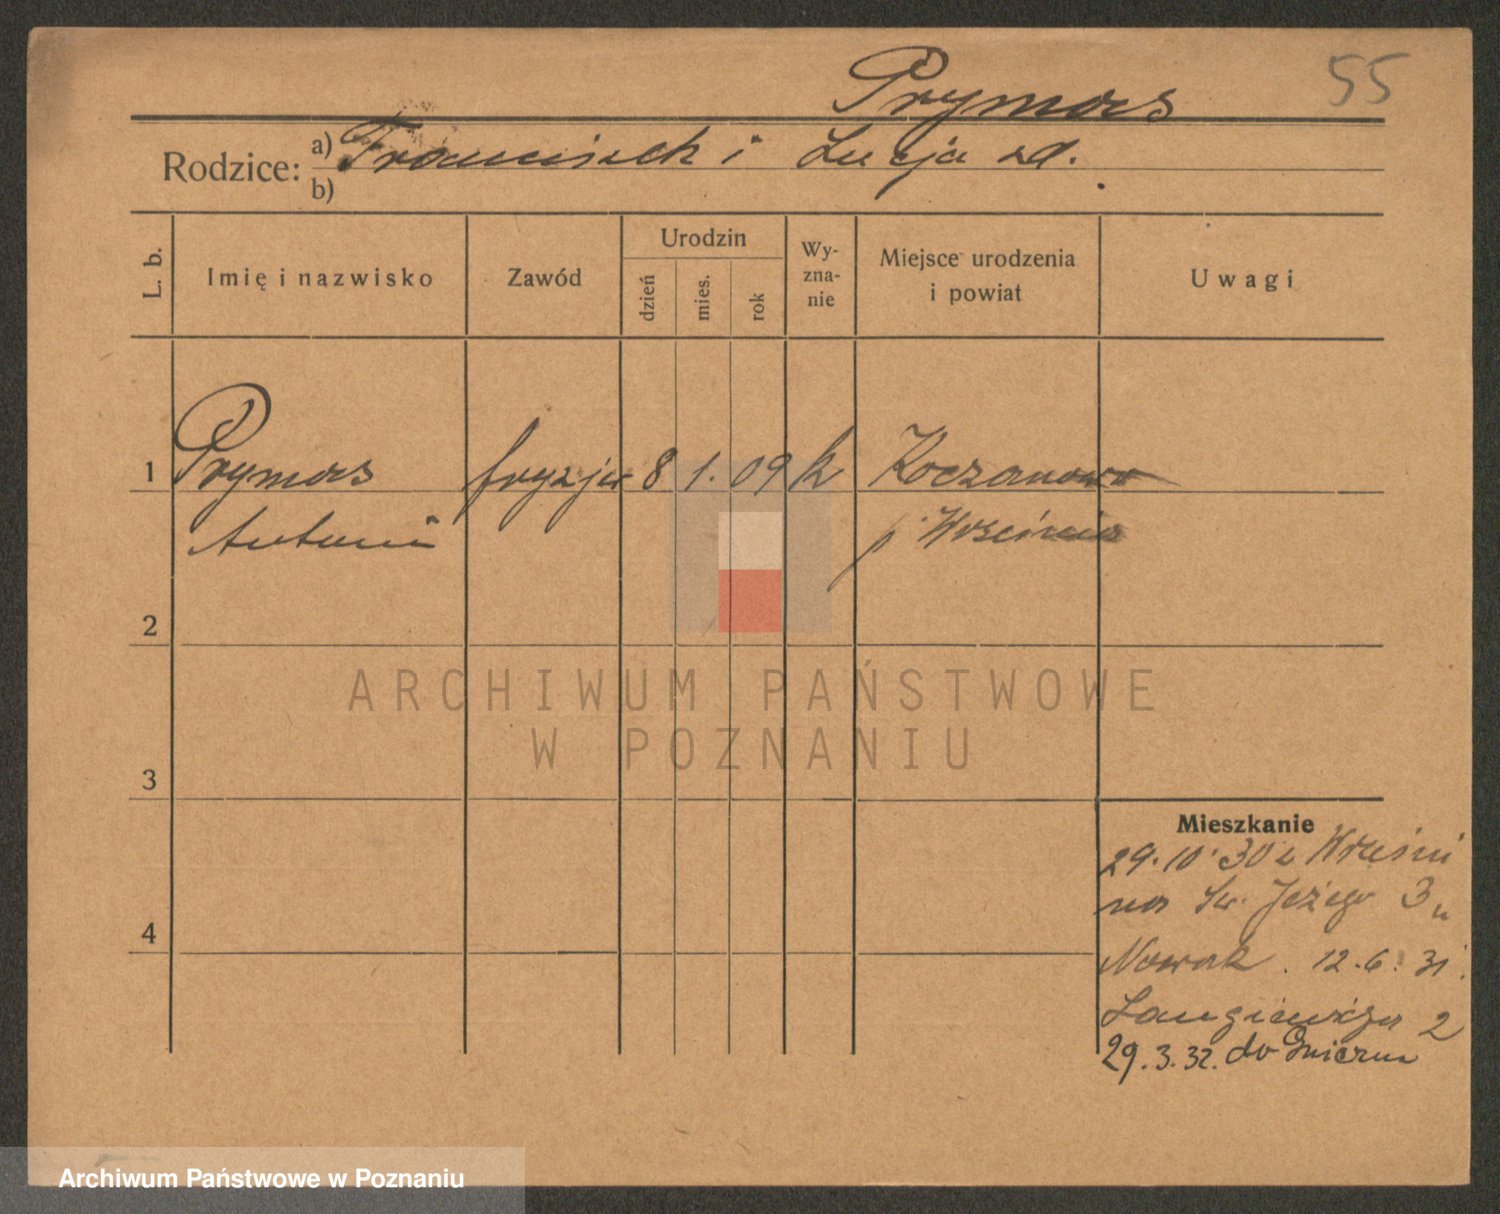 Prymas 55
Rodzice: a) Franciszek i Łucja zd.
b)
L. b. Imię i nazwisko Zawód Urodzin dzień mies. rok Wy-zna-nie Miejsce urodzenia i powiat Uwagi
1 Prymas fryzjer 8 1. 09 k Koczanowo
Antoni p. Września
2
ARCHIWUM PAŃSTWOWE
W POZNANIU
3
Mieszkanie
29.10.30 z Wrześni
na Św. Jeżego 3 u
4
Nowak. 12.6.31.
Langiewicza 2
29.3.32. do Gniezna
Archiwum Państwowe w Poznaniu